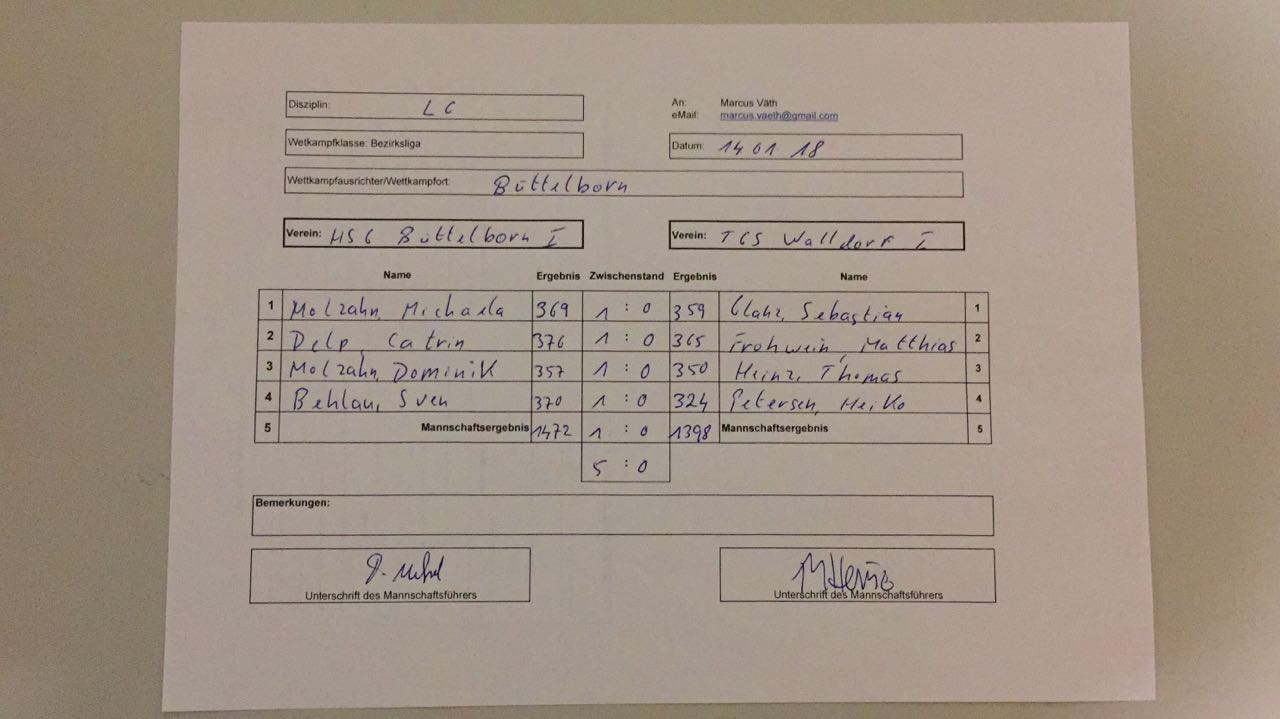 Disziplin: LG
An: Marcus Väth
eMail: marcus.vaeth@gmail.com
Wetkampfklasse: Bezirksliga
Datum: 14 01 18
Wettkampfausrichter/Wettkampfort: Büttelborn
Verein: HSG Büttelborn I
Verein: TGS Walldorf I
Name Ergebnis Zwischenstand Ergebnis Name
1 Molzahn, Michaela 369 1 : 0 359 Glanz, Sebastian 1
2 Delp, Catrin 376 1 : 0 365 Frohwein, Matthias 2
3 Molzahn, Dominik 357 1 : 0 350 Heinz, Thomas 3
4 Behlau, Sven 370 1 : 0 324 Petersen, Heiko 4
5 Mannschaftsergebnis 1472 1 : 0 1398 Mannschaftsergebnis 5
5 : 0
Bemerkungen:
Unterschrift des Mannschaftsführers
Unterschrift des Mannschaftsführers